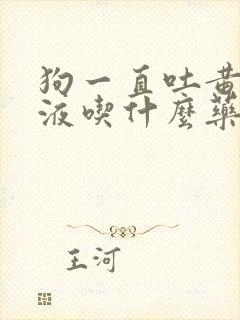 狗一直吐黄
液喫什麼藥
王河